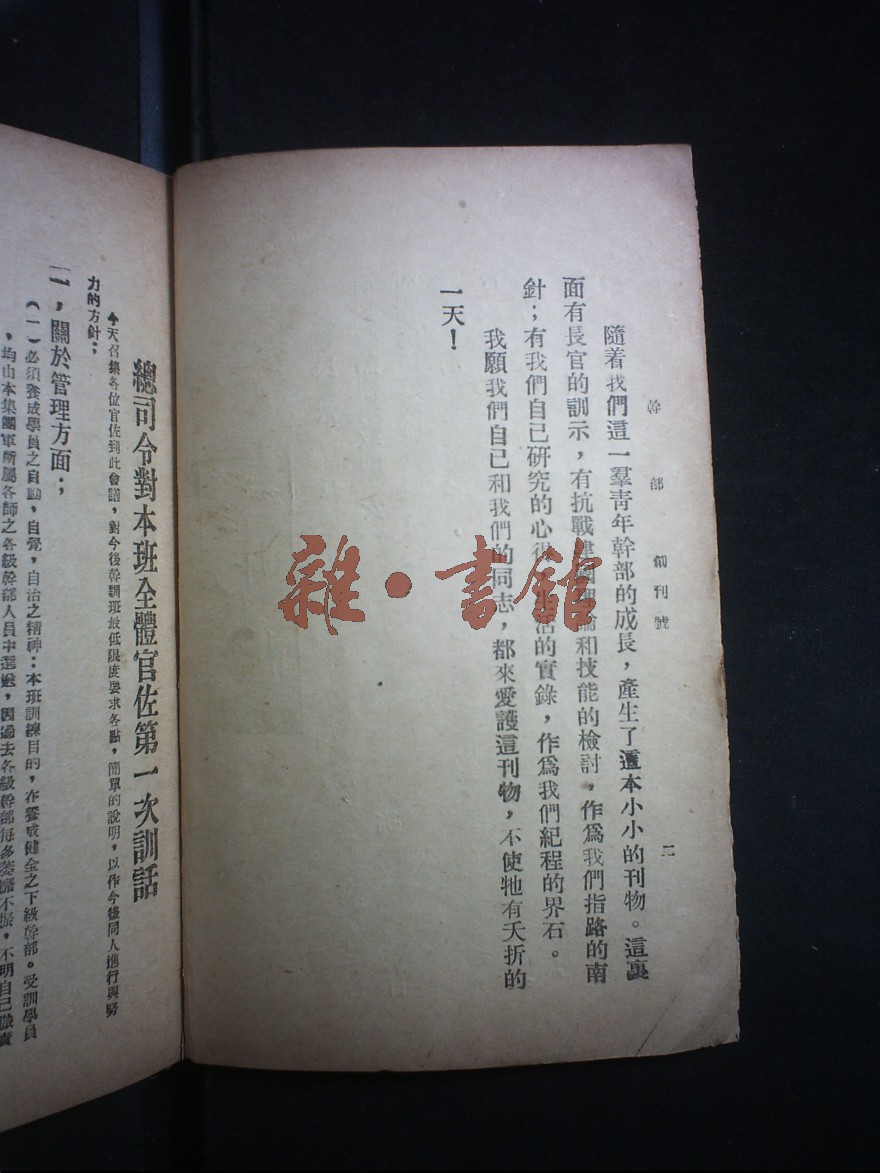 幹部 創刊號
二
隨着我們這一羣靑年幹部的成長，產生了這本小小的刊物。這裏
面有長官的訓示，有抗戰建國理論和技能的檢討，作爲我們指路的南
針；有我們自己硏究的心得，生活的實錄，作爲我們紀程的界石。
我願我們自己和我們的同志，都來愛護這刊物，不使牠有夭折的
一天！
雜·書館
總司令對本班全體官佐第一次訓話
今天召集各位官佐到此會議，對今後幹訓班最低限度要求各點，簡單的說明，以作今後同人進行與努
力的方針；
一，關於管理方面；
（一）必須養成學員之自動，自覺，自治之精神：本班訓練目的，在養成健全之下級幹部。受訓學員
，均由本集團軍所屬各師之各級幹部人員中選送，因過去各級幹部每多萎靡不振，不明自己職責